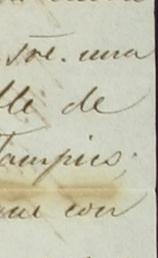 sore. una
lle de
Tampico;
que con